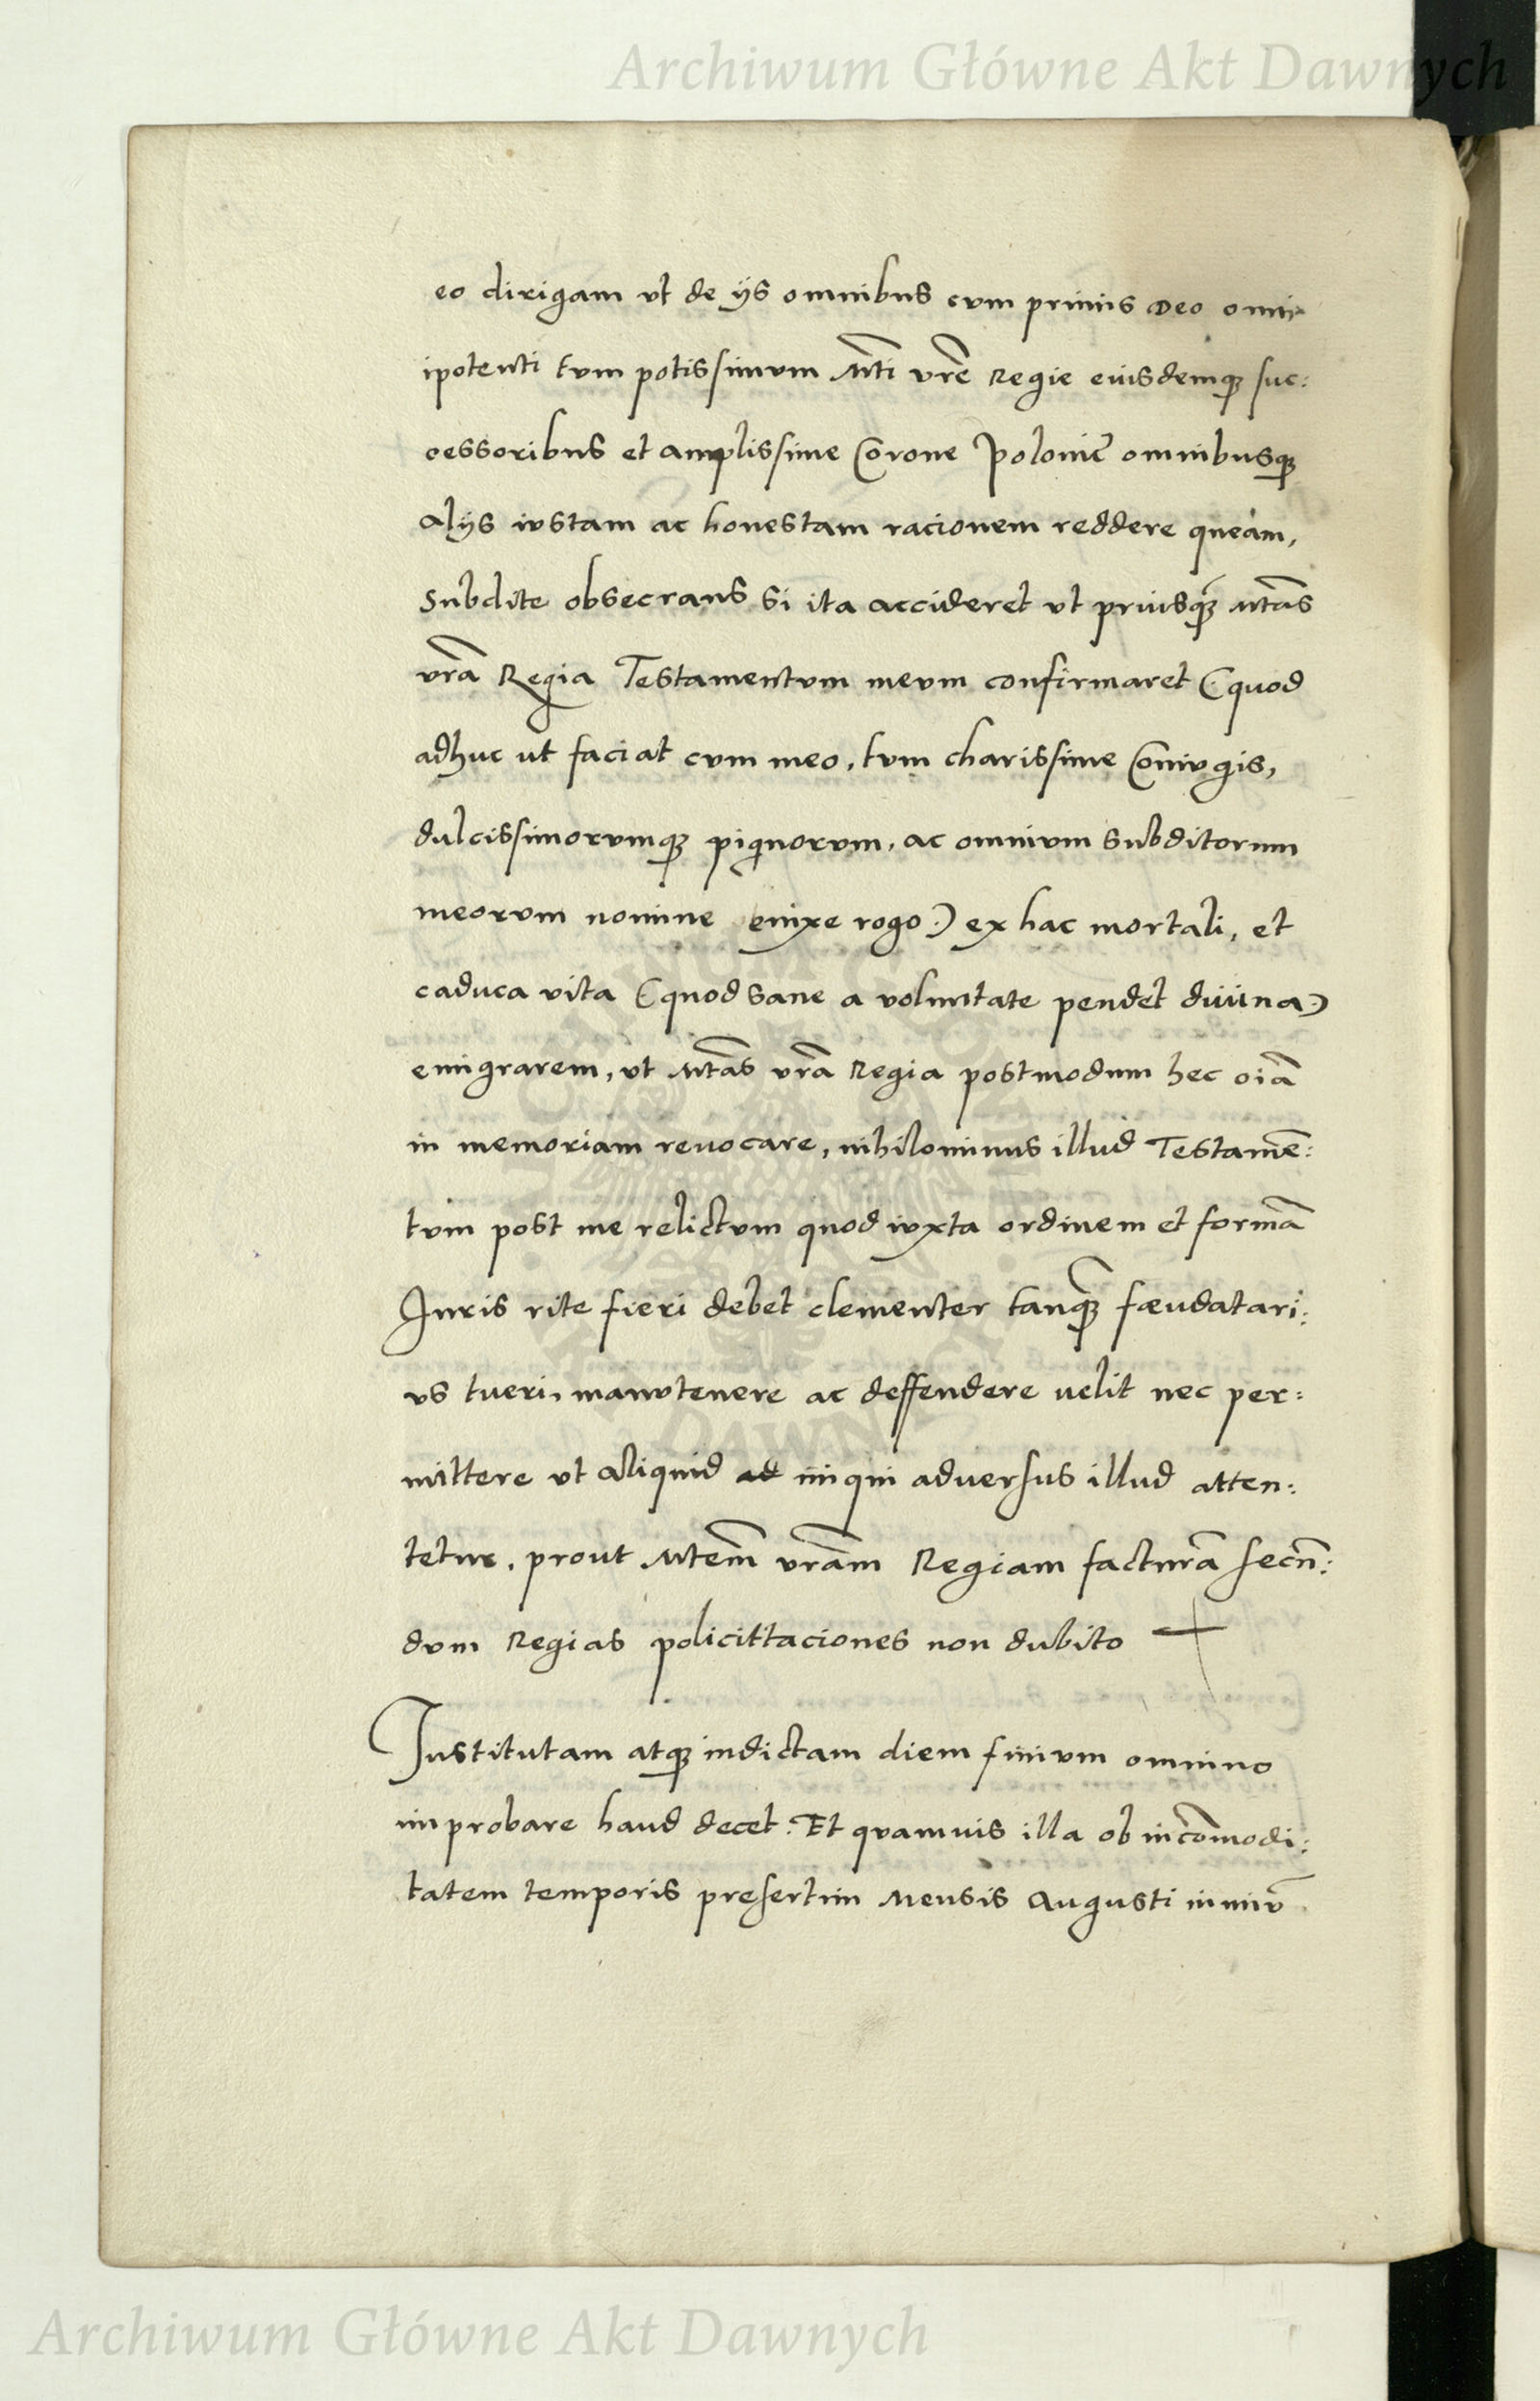 Archiwum Główne Akt Dawnych
eo dirigam vt de ijs omnibus cvm primis Deo omni
ipotenti tvm potissimvm Mti vrē Regie eiusdemq; suc:
cessoribus et amplissime Corone Polonie omnibusq;
alijs ivstam ac honestam racionem reddere queam,
Subdite obsecrans si ita accideret vt priusq̄ Mtās
vrā Regia Testamentvm mevm confirmaret (quod
adhuc ut faciat cvm meo, tvm charissime Conivgis,
dulcissimorvmq; pignorvm, ac omnivm subditorum
meorvm nomine enixe rogo) ex hac mortali, et
caduca vita (quod sane a voluntate pendet diuina)
emigrarem, vt Mtās vrā Regia postmodum hec oīa
in memoriam reuocare, nihilominus illud Testamē:
tvm post me relictvm quod ivxta ordinem et formā
Juris rite fieri debet clementer tanq̄ fœudatari:
vs tveri, manvtenere ac deffendere uelit nec per:
mittere vt aliquid iniqui adversus illud atten:
tetur, prout Mtem vrām Regiam facturā secn̄:
dvm Regias policittaciones non dubito
Institutam atq; indictam diem finivm omnino
improbare haud decet. Et qvamuis illa ob incōmodi:
tatem temporis presertim Mensis Augusti
Archiwum Główne Akt Dawnych